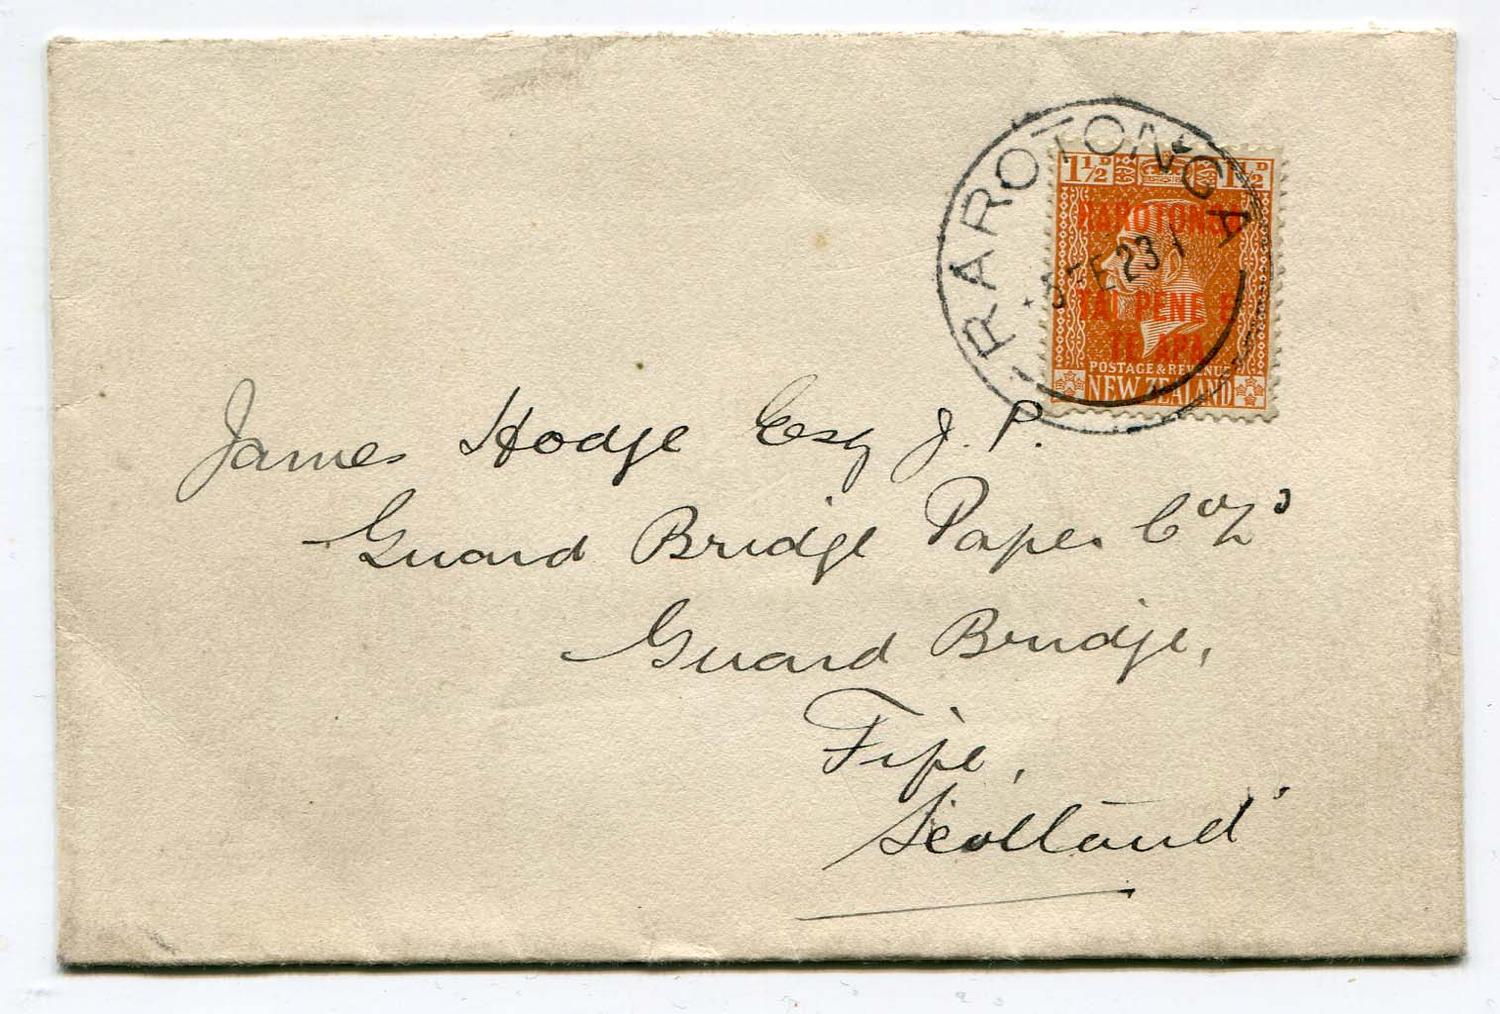 RAROTONGA
FE 23
1½D 1½D
RAROTONGA
TAI PENE E
TE APA
POSTAGE & REVENUE
NEW ZEALAND
James Hodge Esq J. P.
Guard Bridge Paper Co Ld
Guard Bridge,
Fife,
Scotland